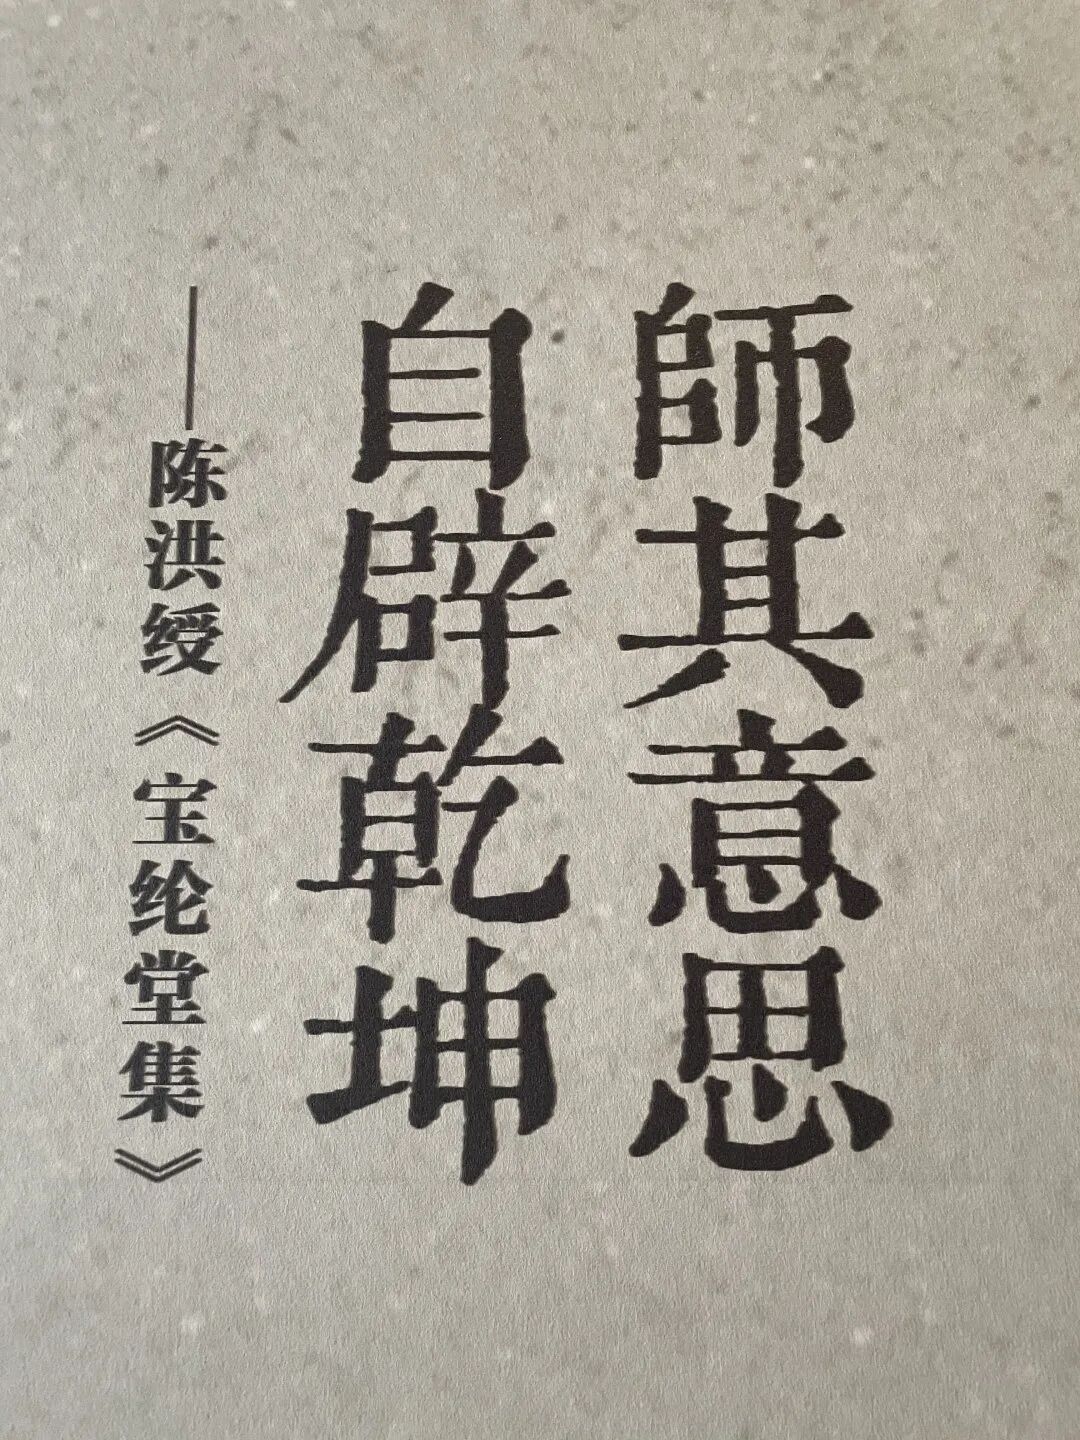 師其意思
自辟乾坤
——陈洪绶《宝纶堂集》